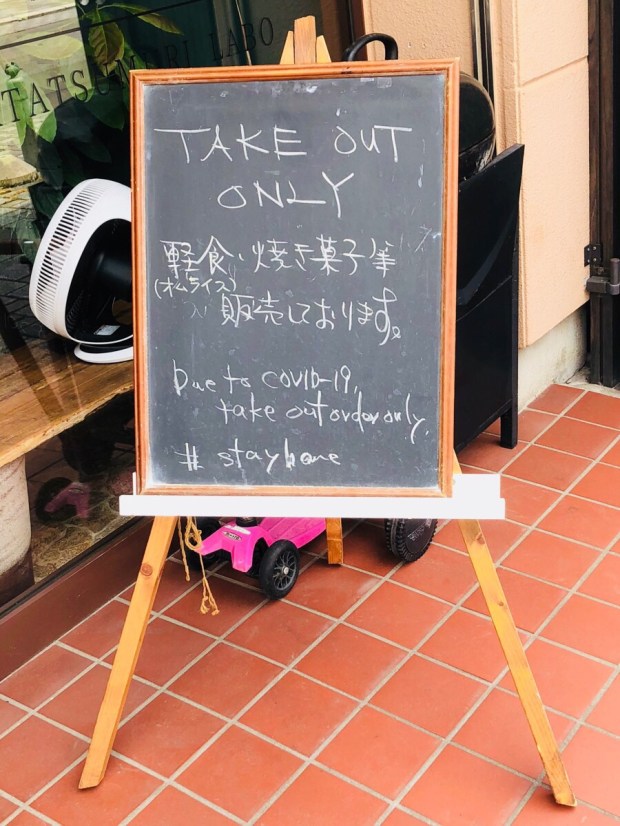 TATSUMORI LABO
TAKE OUT
ONLY
軽食・焼き菓子等
(オムライス)
販売しております。
Due to COVID-19,
take out order only.
# stayhome